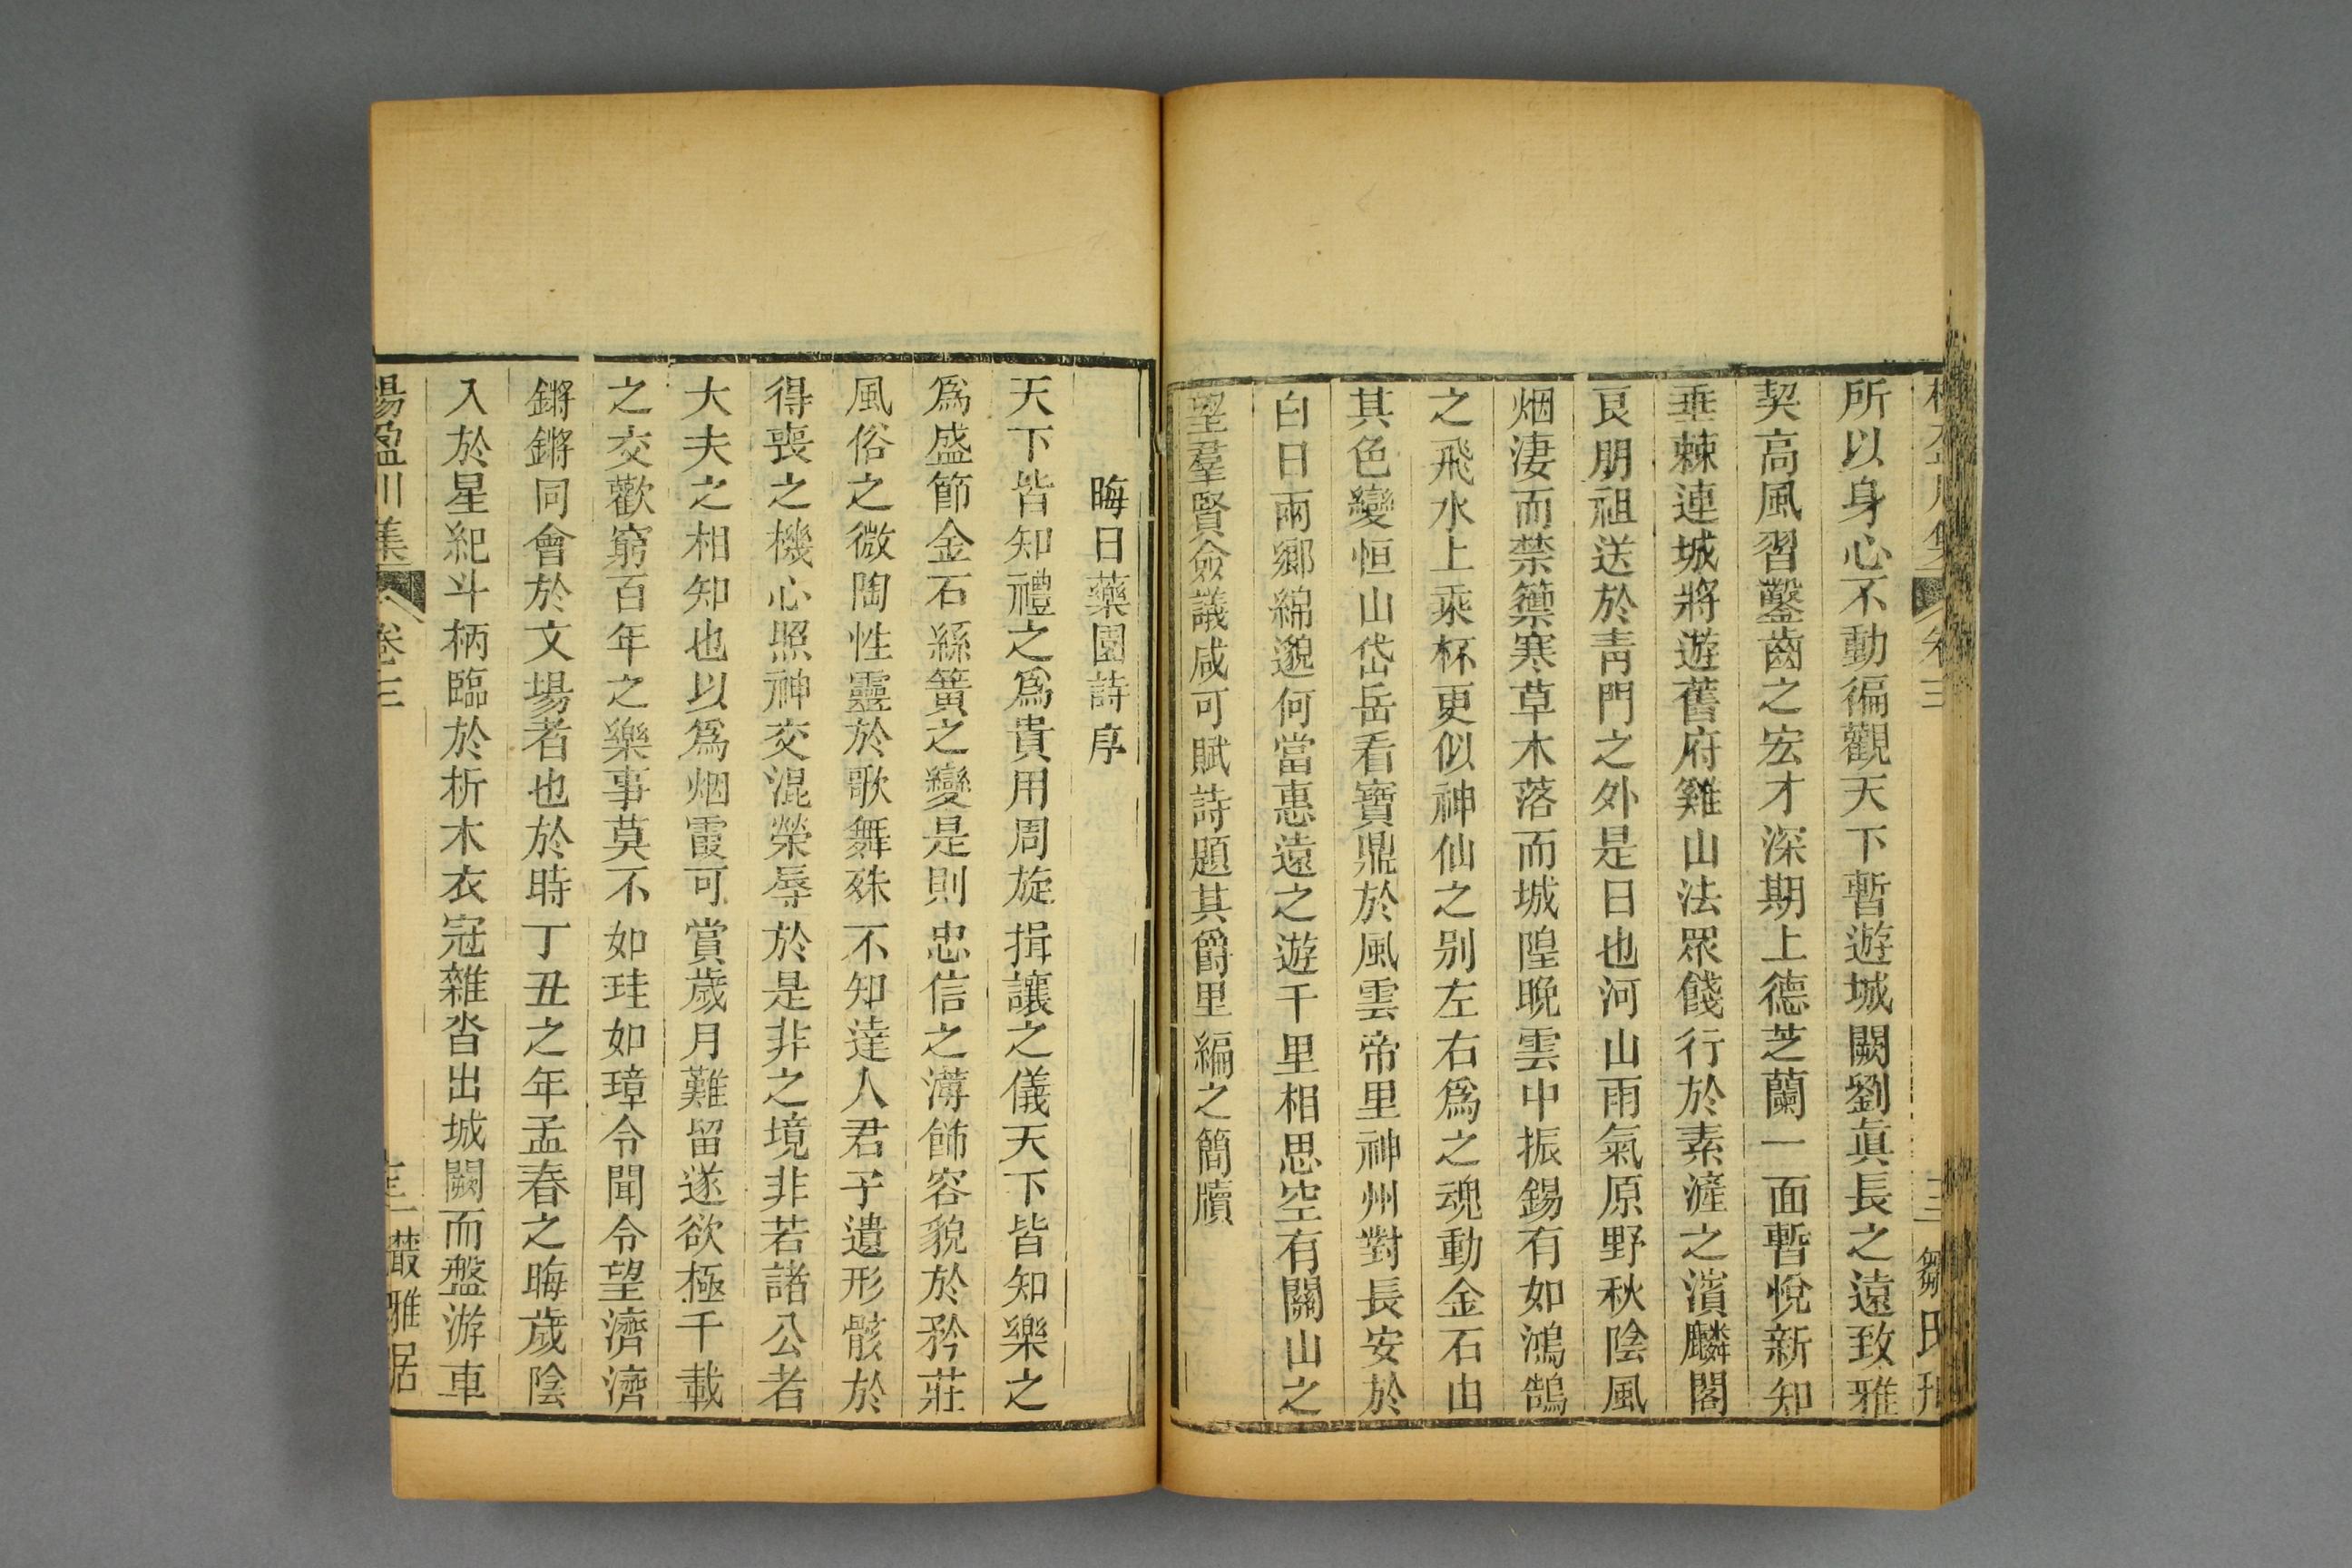 卷三 三 鄒氏
所以身心不動徧觀天下暫遊城闕劉眞長之遠致雅
契高風習鑿齒之宏才深期上德芝蘭一面暫悅新知
垂棘連城將遊舊府雞山法眾餞行於素滻之濱麟閣
良朋祖送於青門之外是日也河山雨氣原野秋陰風
烟淒而禁籞寒草木落而城隍晚雲中振錫有如鴻鵠
之飛水上乘杯更似神仙之别左右爲之魂動金石由
其色變恒山岱岳看寶鼎於風雲帝里神州對長安於
白日兩鄉綿邈何當惠遠之遊千里相思空有關山之
望羣賢僉議咸可賦詩題其爵里編之簡牘
晦日藥園詩序
天下皆知禮之爲貴用周旋揖讓之儀天下皆知樂之
爲盛節金石絲簧之變是則忠信之薄飾容貌於矜莊
風俗之微陶性靈於歌舞殊不知達人君子遺形骸於
得喪之機心照神交混榮辱於是非之境非若諸公者
大夫之相知也以爲烟霞可賞歲月難留遂欲極千載
之交歡窮百年之樂事莫不如珪如璋令聞令望濟濟
鏘鏘同會於文場者也於時丁丑之年孟春之晦歲陰
入於星紀斗柄臨於析木衣冠雜沓出城闕而盤游車
楊盈川集 卷三 叢雅居